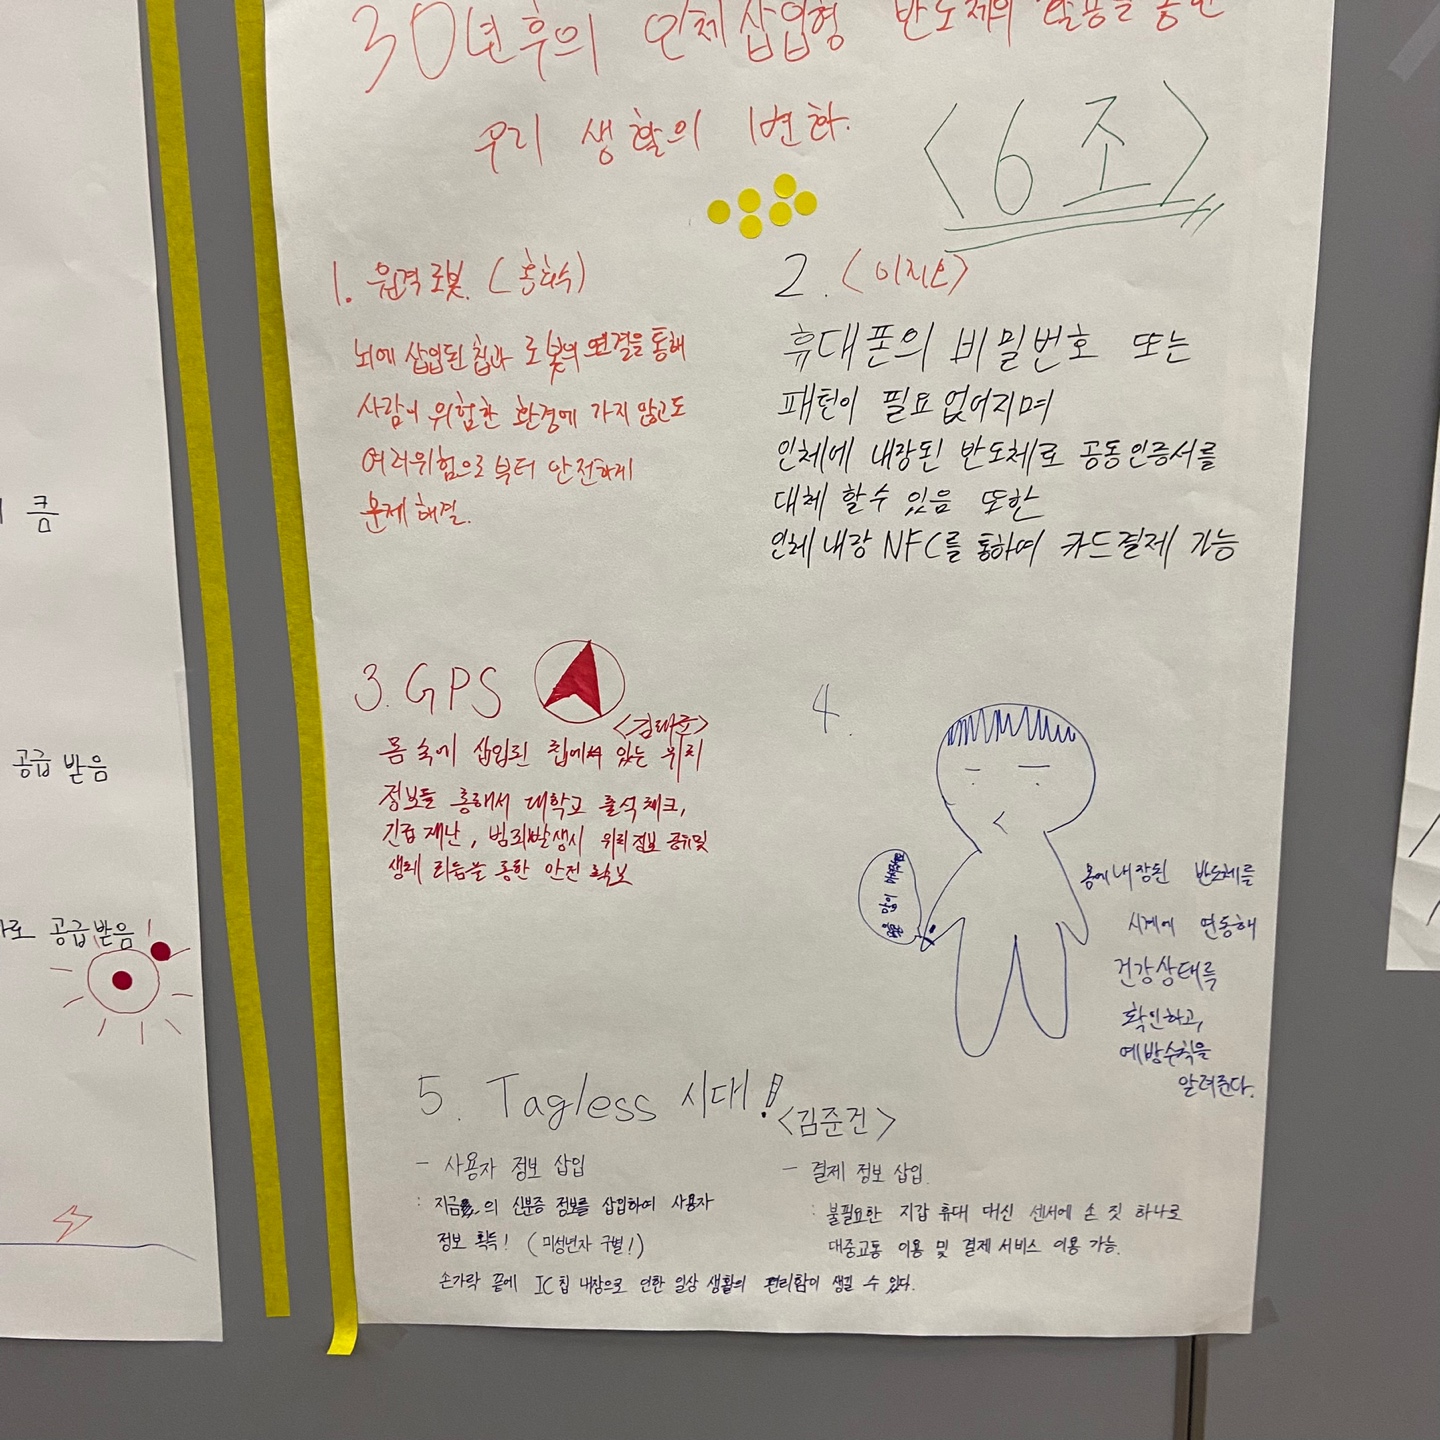 30년후의 인체삽입형 반도체의 활용을 통한
우리 생활의 변화.
<6조>
1. 원격로봇. (홍희수)
뇌에 삽입된 칩과 로봇의 연결을 통해
사람이 위험한 환경에 가지 않고도
여러위험으로부터 안전하게
문제해결.
2. <이지오>
휴대폰의 비밀번호 또는
패턴이 필요없어지며
인체에 내장된 반도체로 공동인증서를
대체 할수 있음 또한
인체내장 NFC를 통하여 카드결제 가능
3. GPS
<김태준>
몸 속에 삽입된 칩에서 있는 위치
정보들 통해서 대학교 출석체크,
긴급재난, 범죄발생시 위치정보 공유및
생체 리듬을 통한 안전 확보
4.
몸에내장된 반도체를
시계에 연동해
건강상태를
확인하고,
예방수칙을
알려준다.
5. Tagless 시대!
<김준건>
- 사용자 정보 삽입
: 지금의 신분증 정보를 삽입하여 사용자
정보 획득! (미성년자 구별!)
- 결제 정보 삽입.
: 불필요한 지갑 휴대 대신 센서에 손 짓 하나로
대중교통 이용 및 결제 서비스 이용 가능.
손가락 끝에 IC칩 내장으로 인한 일상 생활의 편리함이 생길 수 있다.
큼
공급 받음
로 공급받음